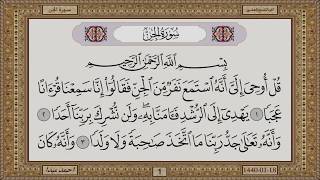 سورة الجن
سُورَةُ الجِنِّ
بِسْمِ اللَّهِ الرَّحْمَٰنِ الرَّحِيمِ
قُلْ أُوحِيَ إِلَيَّ أَنَّهُ ٱسْتَمَعَ نَفَرٌ مِّنَ ٱلْجِنِّ فَقَالُوٓا۟ إِنَّا سَمِعْنَا قُرْءَانًا
عَجَبًا ١ يَهْدِىٓ إِلَى ٱلرُّشْدِ فَـَٔامَنَّا بِهِۦ وَلَن نُّشْرِكَ بِرَبِّنَآ أَحَدًا ٢
وَأَنَّهُۥ تَعَٰلَىٰ جَدُّ رَبِّنَا مَا ٱتَّخَذَ صَٰحِبَةً وَلَا وَلَدًا ٣ وَأَنَّهُۥ كَانَ
1
1440-01-18